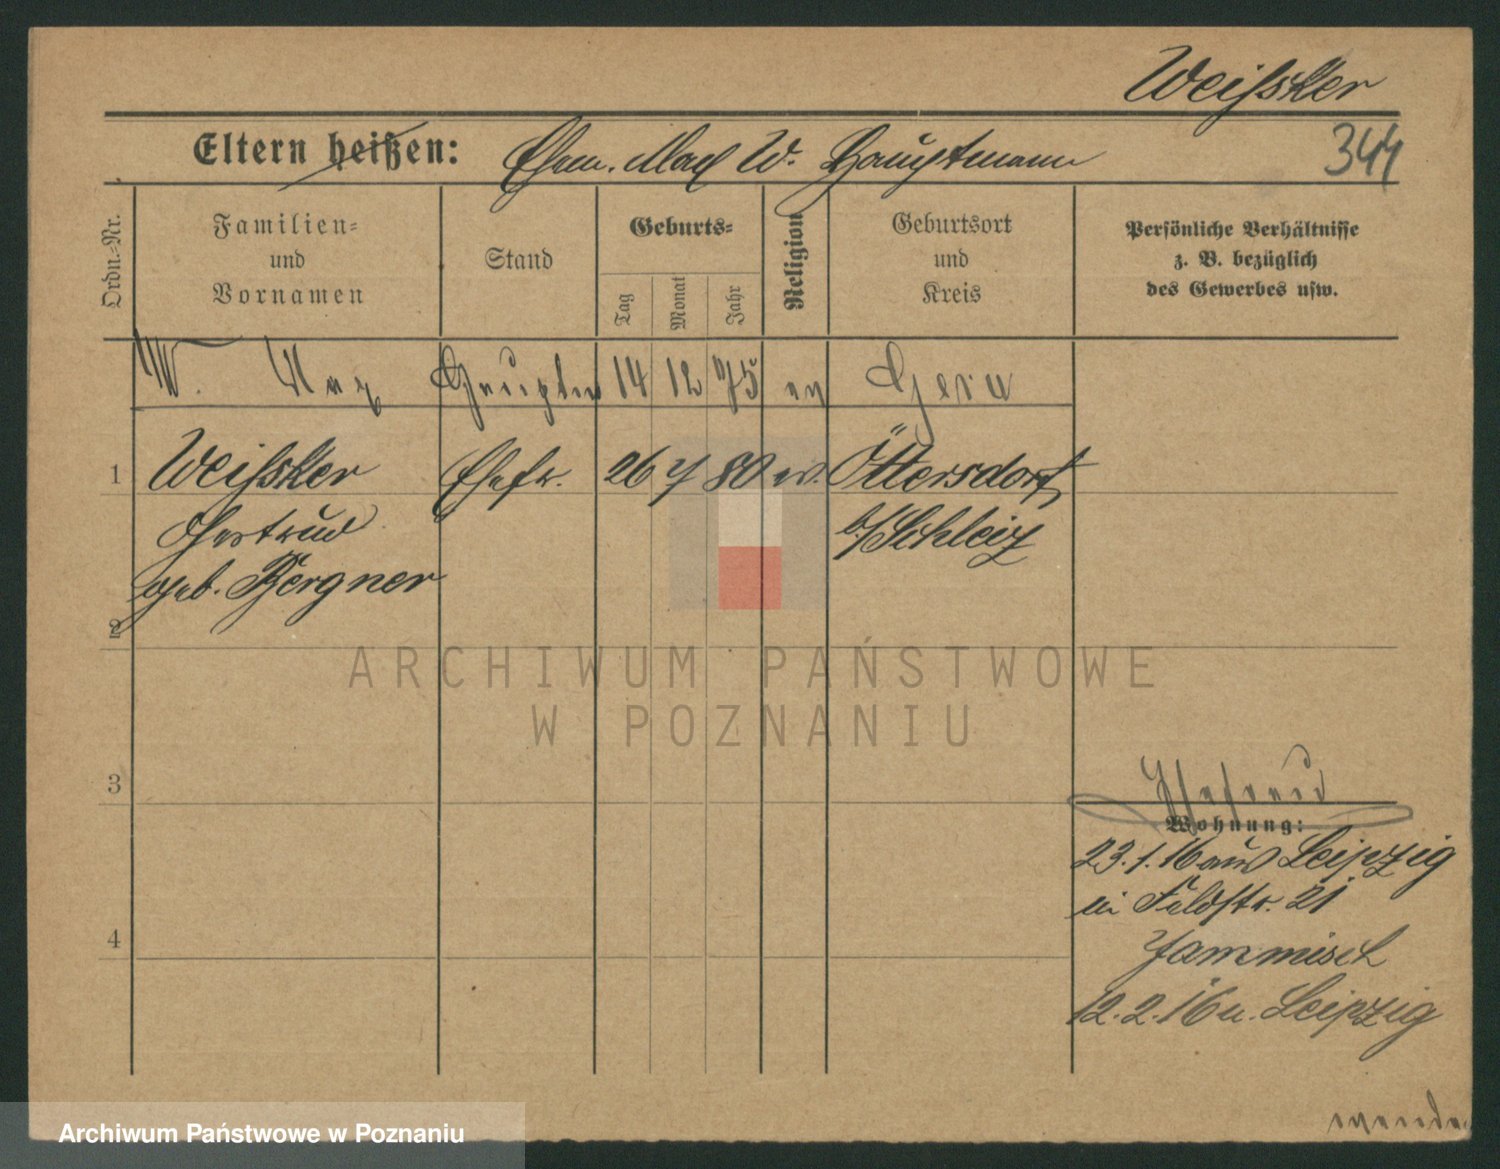 Weißker
Eltern heißen: Ehem. Max W. Hauptmann
344
Ordn.-Nr.
Familien-
und
Vornamen
Stand
Geburts-
Tag
Monat
Jahr
Religion
Geburtsort
und
Kreis
Persönliche Verhältnisse
z. B. bezüglich
des Gewerbes usw.
W. Max Hauptm 14 12 75 ev Gera
1 Weißker Ehefr. 26 7 80 ev. Öttersdorf
Gertrud b/Schleiz
geb. Bergner
2
3
4
Wohnung:
23.1.16 aus Leipzig
in Feldstr. 21
Jammisch
12.2.16 n. Leipzig
wenden
ARCHIWUM PAŃSTWOWE
W POZNANIU
Archiwum Państwowe w Poznaniu